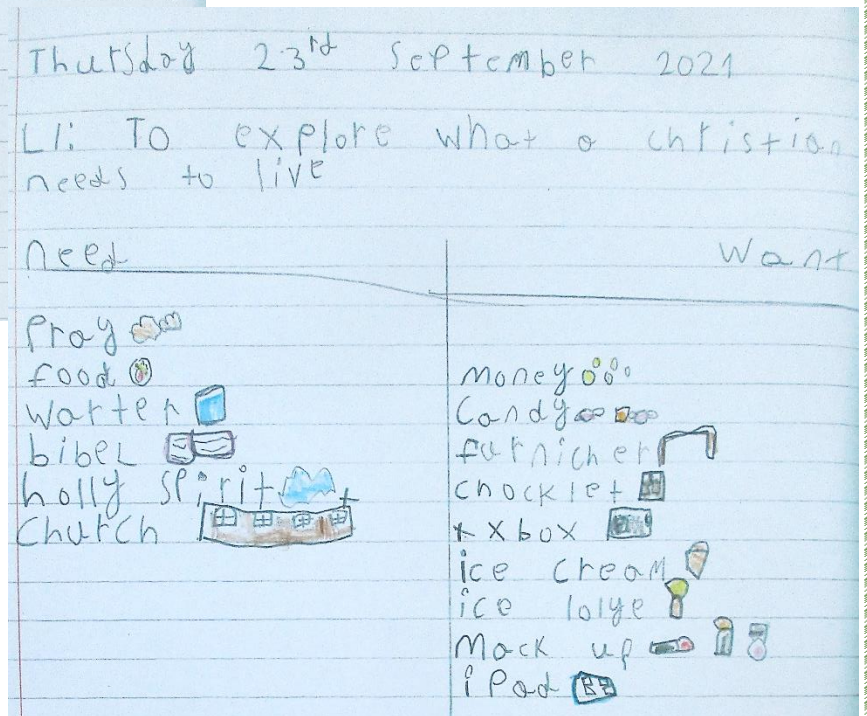 Thursday 23rd September 2021
LI: To explore what a christian
needs to live
need
want
Pray
food
warter
bibel
holly spirit
Church
money
Candy
furnicher
chocklet
xbox
ice cream
ice lolye
Mack up
iPad